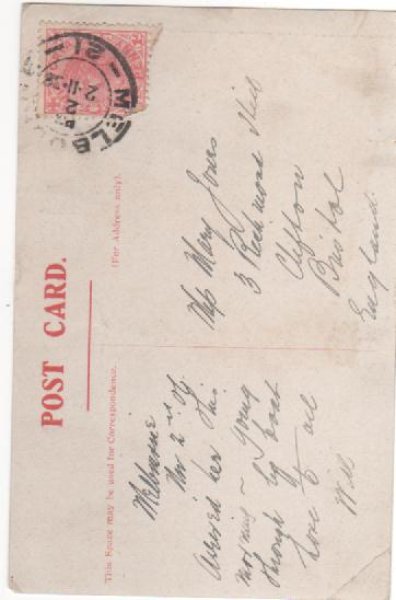 POST CARD.
This Space may be used for Correspondence.
(For Address only).
MELBOURNE
21
2-11
Melbourne
Nov 2nd 07
Arrived here this
morning ~ going
through by boat
Love to all
Will
Miss Mary Jones
3 Richmond Hill
Clifton
Bristol
England